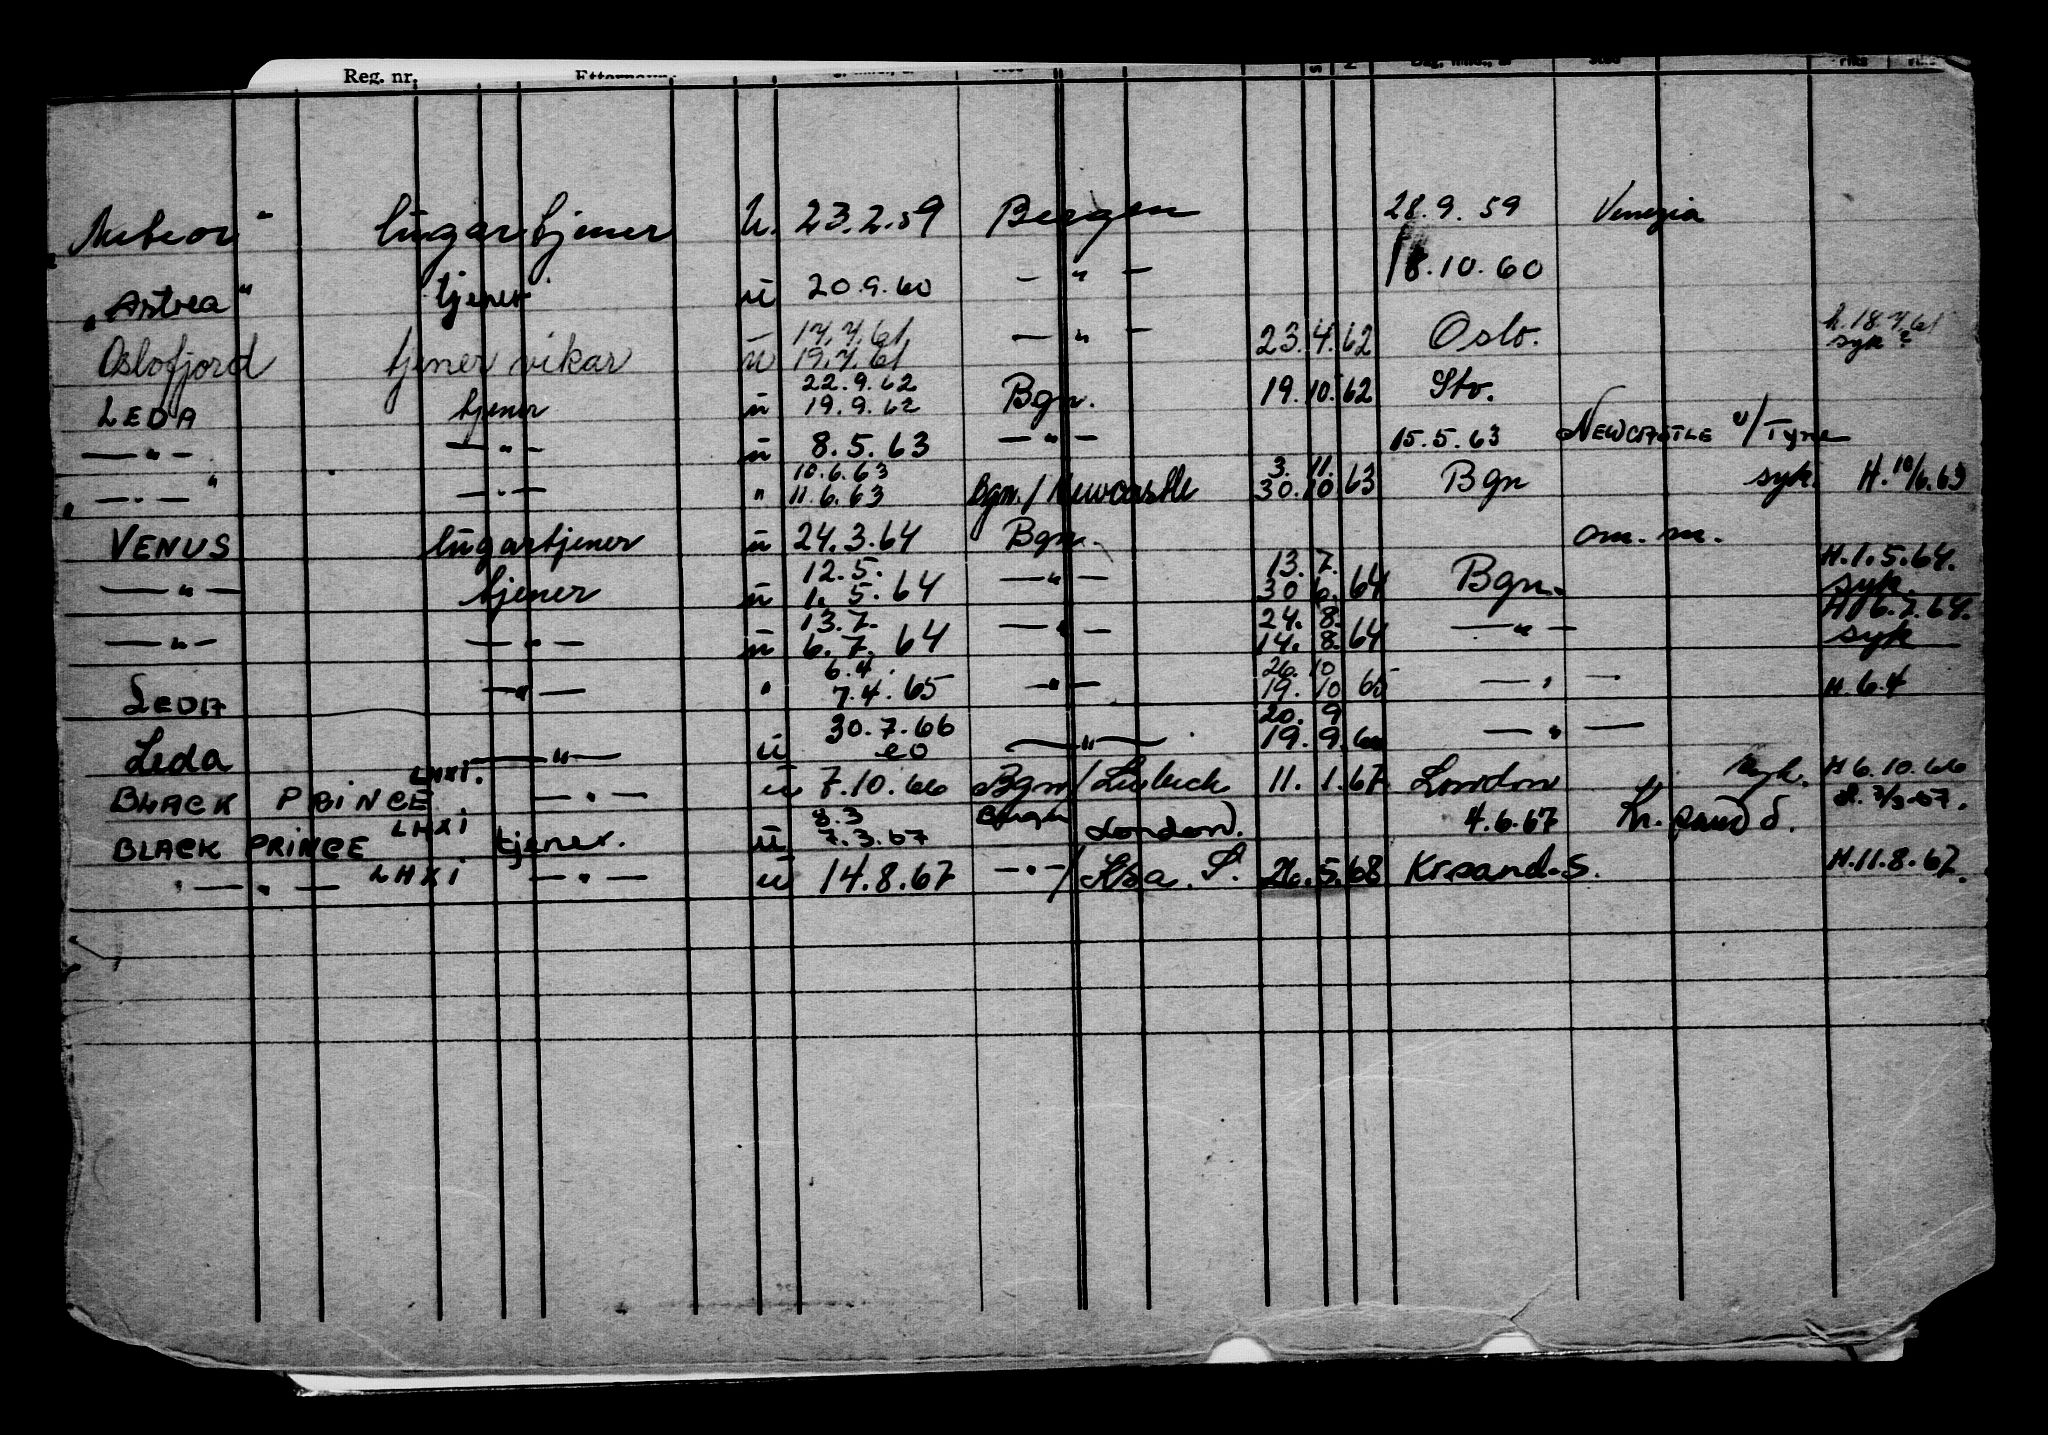 Reg. nr. Etternavn
Meteor" lugartjener u. 23.2.59 Bergen 28.9.59 Venezia
"Astrea" tjener u 20.9.60 — " — 18.10.60
Oslofjord tjener vikar u 17.7.61 19.7.61 — " — 23.4.62 Oslo. h.18.7.61 syk?
LEDA tjener u 22.9.62 19.9.62 Bgn. 19.10.62 Stv.
— " — — " — u 8.5.63 — " — 15.5.63 NEWCASTLE u/Tyne
" — " — " — " — " 10.6.63 11.6.63 Bgn/Newcastle 3.11. 30.10.63 Bgn syk. H.10/6.63
VENUS lugartjener u 24.3.64 Bgn. om. m.
— " — tjener u 12.5. 1.5.64 — " — 13.7. 30.6.64 Bgn. H.1.5.64. syk.
— " — — " — u 13.7. 6.7.64 — " — 24.8. 14.8.64 — " — H 6.7.64. syk
LEDA — " — " 6.4. 7.4.65 — " — 26.10 19.10 65 — " — H.6.4
Leda — " — u 30.7.66 — " — 20.9 19.9.66 — " —
BLACK PRINCE LHXI. — " — u 7.10.66 Bgn/Lübeck 11.1.67 London syk. H 6.10.66
BLACK PRINCE LHXI tjener. u 8.3 7.3.67 Bergen London). 4.6.67 Kr.sand S. H. 7/3-67.
" — " — LHXI — " — u 14.8.67 — " —/Ksa. S. 26.5.68 Krsand.S. H.11.8.67.